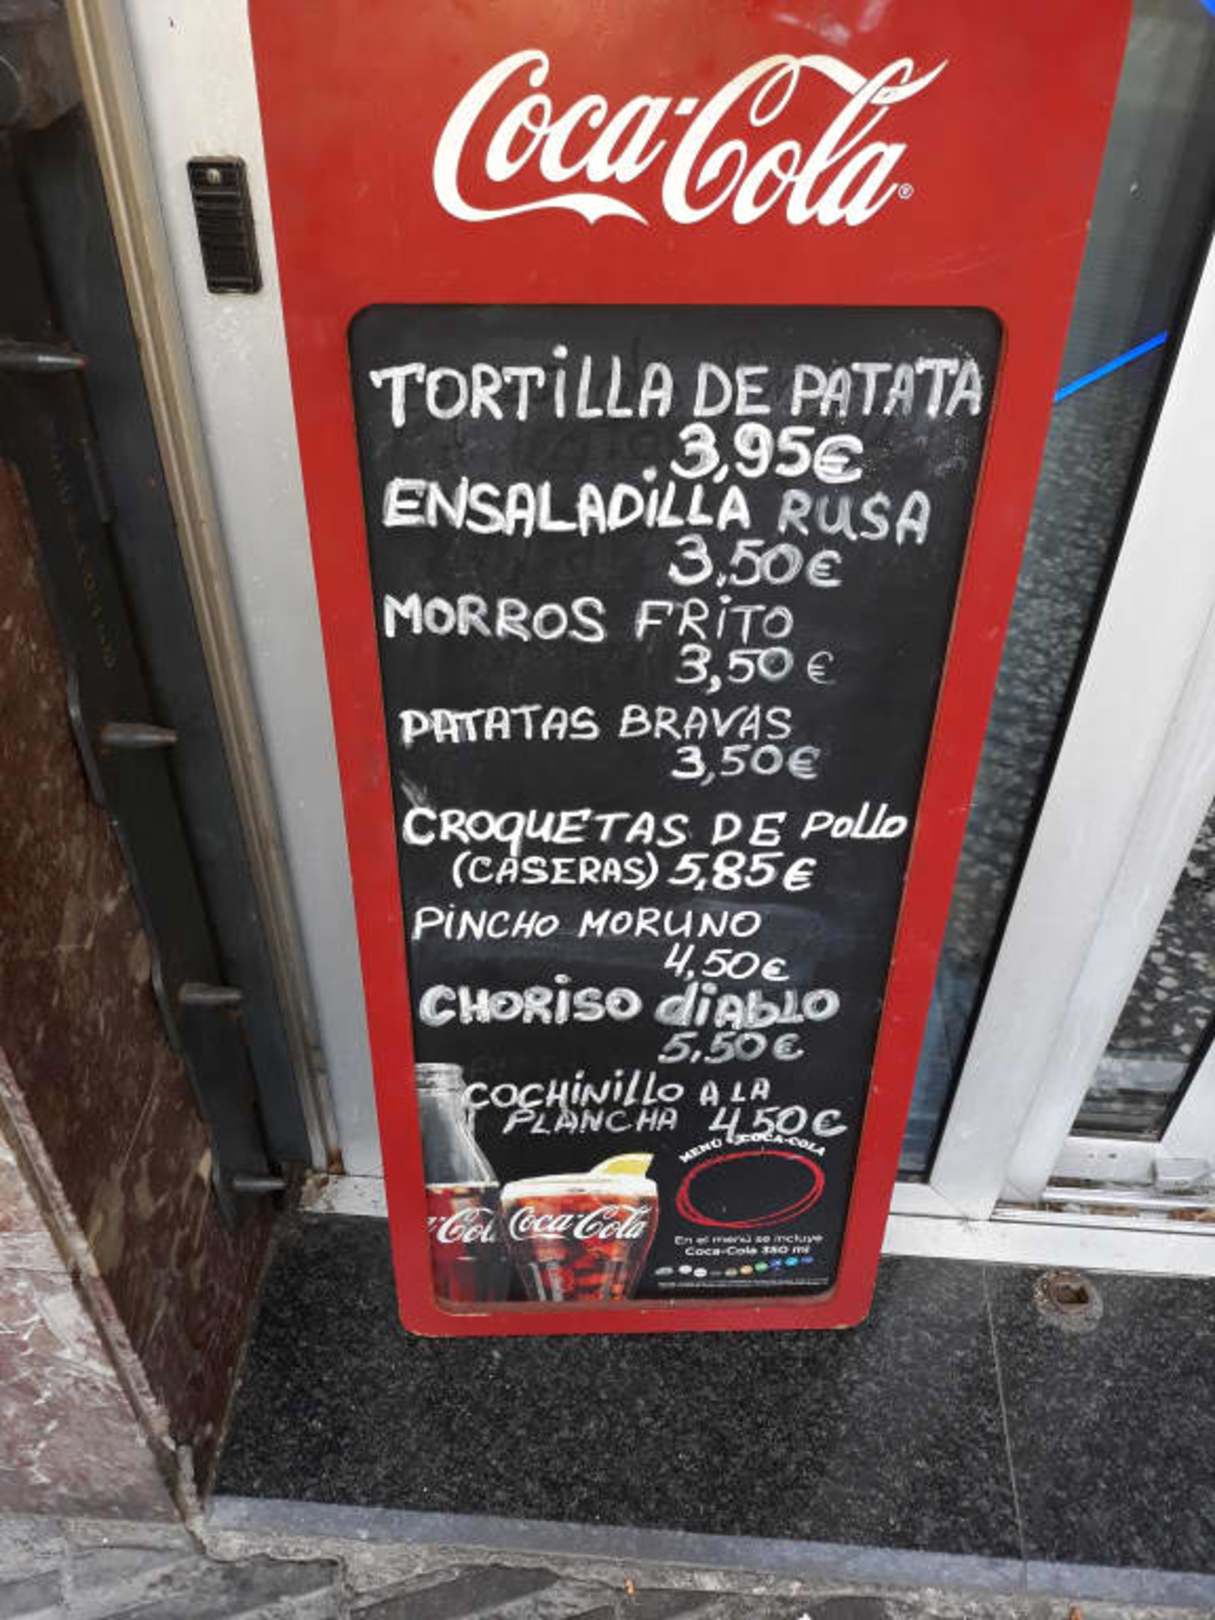 Coca-Cola®
TORTiLLA DE PATATA
3,95€
ENSALADiLLA RUSA
3,50€
MORROS FRiTO
3,50€
PATATAS BRAVAS
3,50€
CROQUETAS DE POLLO
(CASERAS) 5,85€
PiNCHO MORUNO
4,50€
CHORiSO diABLO
5,50€
COCHiNiLLO A LA
PLANCHA 4,50€
MENÚ COCA-COLA
Coca-Cola
En el menú se incluye
Coca-Cola 350 ml